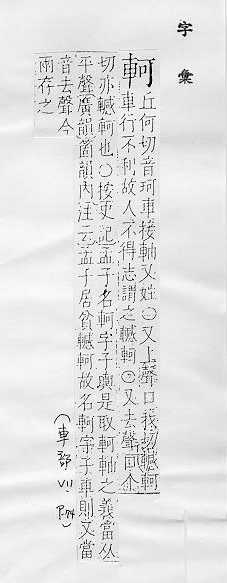 字彙
軻
丘何切音珂車接軸又姓〇又上聲口我切轗軻
車行不利故人不得志謂之轗軻〇又去聲口个
切亦轗軻也〇按史記孟子名軻字子輿是取軻軸之義當从
平聲廣韻箇韻內注云孟子居貧轗軻故名軻字子車則又當
音去聲今
兩存之
(車部 VII.